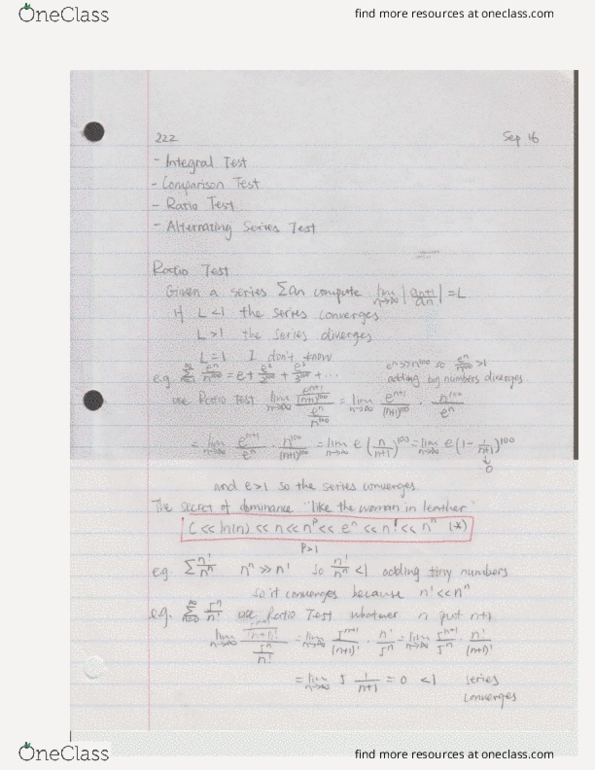 OneClass find more resources at oneclass.com
222 Sep 16
- Integral Test
- Comparison Test
- Ratio Test
- Alternating Series Test
Ratio Test
Given a series Σan compute lim n→∞ |an+1/an| = L
If L<1 the series converges
L>1 the series diverges
L=1 I don't know
e.g. Σ e^n/n^100 = e + e^2/2^100 + e^3/3^100 + ... e^n >> n^100 so e^n/n^100 > 1
adding big numbers diverges
use Ratio Test lim n→∞ (e^(n+1)/(n+1)^100)/(e^n/n^100) = lim n→∞ e^(n+1)/(n+1)^100 · n^100/e^n
= lim n→∞ e^(n+1)/e^n · n^100/(n+1)^100 = lim n→∞ e (n/(n+1))^100 = lim n→∞ e (1 - 1/(n+1))^100
↓
0
and e>1 so the series converges
The secret of dominance "like the woman in leather"
C << ln(n) << n << n^p << e^n << n! << n^n (*)
p>1
e.g. Σ n!/n^n n^n >> n! so n!/n^n < 1 adding tiny numbers
so it converges because n! << n^n
e.g. Σ 5^n/n! use Ratio Test whatever n put n+1
lim n→∞ (5^(n+1)/(n+1)!)/(5^n/n!) = lim n→∞ 5^(n+1)/(n+1)! · n!/5^n = lim n→∞ 5^(n+1)/5^n · n!/(n+1)!
= lim n→∞ 5 1/(n+1) = 0 < 1 series
converges
OneClass find more resources at oneclass.com